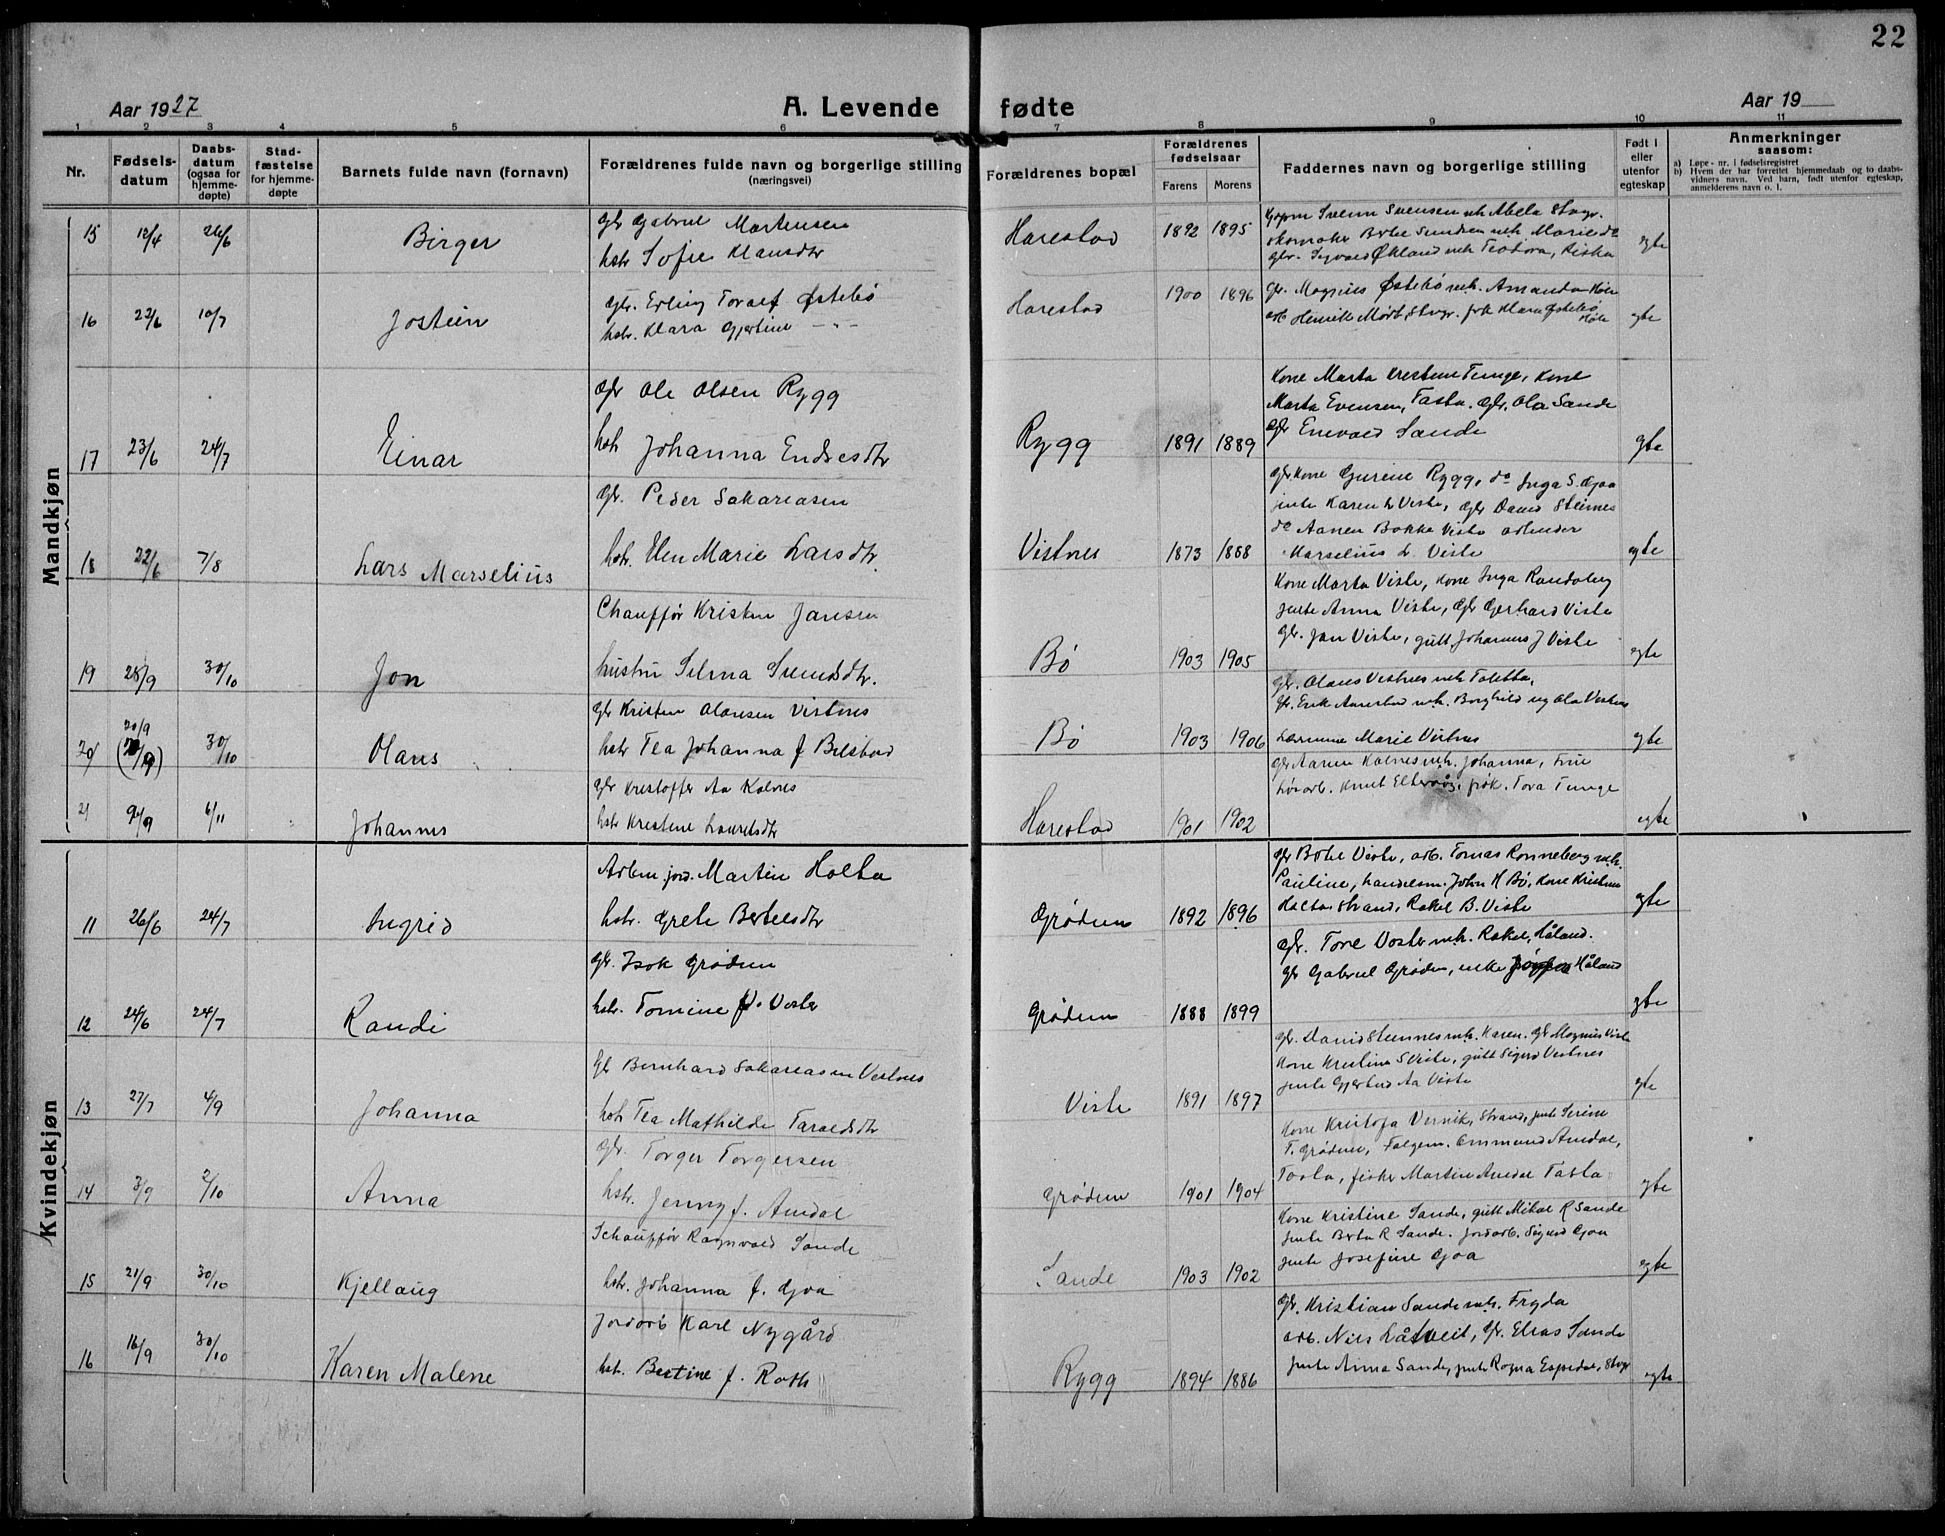 22
Aar 1927
A. Levende fødte
Aar 19
1 2 3 4 5 6 7 8 9 10 11
Nr.
Fødselsdatum
Daabsdatum (ogsaa for hjemmedøpte)
Stadfæstelse for hjemmedøpte
Barnets fulde navn (fornavn)
Forældrenes fulde navn og borgerlige stilling (næringsvei)
Forældrenes bopæl
Forældrenes fødselsaar
Farens Morens
Faddernes navn og borgerlige stilling
Født i eller utenfor egteskap
Anmerkninger
saasom:
a) Løpe-nr. i fødselsregistret
b) Hvem der har forrettet hjemmedaab og to daabsvidners navn. Ved barn, født utenfor egteskap, anmelderens navn o. l.
Mandkjøn
15 12/4 26/6 Birger
Gbr Gabriel Martensen
hstr Sofie Klausdtr
Harestad 1892 1895
egte
16 22/6 10/7 Jostein
Gbr. Erling Toralf Østebø
hstr. Klara Gjertine -"-
Harestad 1900 1896
Gbr. Magnus Østebø mh. Amanda Høle
arb Henrik Mørk, Stvgr. frk Klara Østebø Høle
egte
17 23/6 24/7 Einar
Gbr Ole Olsen Rygg
hstr Johanna Endresdtr
Rygg 1891 1889
Kone Marta Kristine Tunge, Kone
Marta Evensen, Tasta. Gbr. Ola Sande
Gbr Enevald Sande
egte
18 22/6 7/8 Lars Marselius
Gbr. Peder Sakariasen
hstr. Elen Marie Larsdtr.
Vistnes 1873 1888
Gbr kone Gurine Rygg, do Inga S. Gjoa
jente Karen L Viste, Gbr David Steinnes
do Aanen Bakka Viste arbeider
Marselius L. Viste
egte
19 28/9 30/10 Jon
Chauffør Kristen Jansen
hustru Selma Svendsdtr.
Bø 1903 1905
Kone Marta Viste, Kone Inga Randaberg
jente Anna Viste, Gbr Gerhard Viste
Gbr. Jan Viste, gutt Johannes J Viste
egte
20 20/9 30/10 Olaus
Gbr Kristen Olausen Vistnes
hstr Tea Johanna f Bilstad
Bø 1903 1906
Gbr. Olaus Vistnes mh Taletta,
Gbr. Erik Aarestad mh. Borghild og Ola Vistnes
Lærerinne Marie Vistnes
egte
21 9/9 6/11 Johannes
Gbr Kristoffer Aa Kalnes
hstr Kristine Lauritsdtr
Harestad 1901 1902
Gbr Aanen Kalnes mh. Johanna, Frue
Løsarb. Knut Eltervåg, frøk. Tora Tunge
egte
Kvindekjøn
11 26/6 24/7 Ingrid
Arbm. jord. Martin Holta
hstr. Grete Bertelsdtr
Grødem 1892 1896
Gbr Bertel Viste, arb. Tomas Rønneberg mh.
Pauline, handelsm. John H Bø, Kone Kristine
Holta Strand, Rakel B. Viste
egte
12 24/6 24/7 Randi
Gbr. Isak Grødem
hstr. Tomine f. Voster
Grødem 1888 1899
Gbr. Tore Voster mh. Rakel, Håland.
Gbr Gabriel Grødem, enke Håland
egte
13 27/7 4/9 Johanna
Gbr Bernhard Sakariasen Vistnes
hstr Tea Mathilde Taraldsdtr
Viste 1891 1897
Gbr. David Steinnes mh. Karen. Gbr Magnus Viste
Kone Kristine S Viste, gutt Sigurd Vistnes
jente Gjertrud Aa Viste
egte
14 3/9 2/10 Anna
Gbr. Torger Torgersen
hstr. Jenny f. Amdal
Grødem 1901 1904
Kone Kristofa Vernik, Strand, jente Serine
T. Grødem, Falgem. Emmund Amdal,
Tasta, fisker Martin Amdal Tasta
egte
15 21/9 30/10 Kjellaug
Schauffør Ragnvald Sande
hstr. Johanna f. Gjoa
Sande 1903 1902
Kone Kristine Sande, gutt Mikal R Sande
jente Berta R Sande. Jordarb. Sigurd Gjoa
jente Josefine Gjoa
egte
16 16/9 30/10 Karen Malene
Jordarb Karl Nygård
hstr. Bertine f. Roth
Rygg 1894 1886
Gbr. Kristian Sande mh. Fryda
arb. Nils Låtveit, Gbr. Elias Sande
jente Anna Sande, jente Ragna Espedal, Stvgr
egte